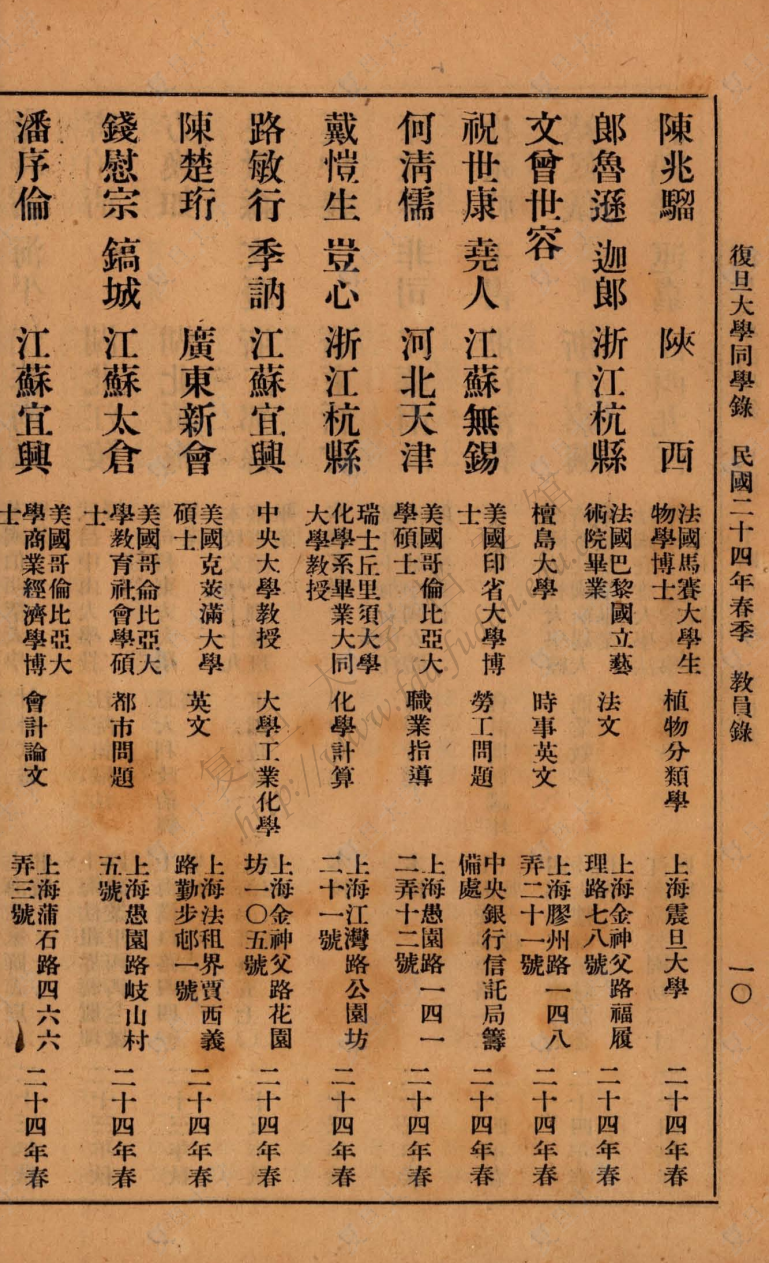 復旦大學同學錄 民國二十四年春季 教員錄 一〇
陳兆騮 陝西 法國馬賽大學生物學博士 植物分類學 上海震旦大學 二十四年春
郎魯遜 迦郎 浙江杭縣 法國巴黎國立藝術院畢業 法文 上海金神父路福履理路七八號 二十四年春
文曾世容 檀島大學 時事英文 上海膠州路一四八弄二十一號 二十四年春
祝世康 堯人 江蘇無錫 美國印省大學博士 勞工問題 中央銀行信託局籌備處 二十四年春
何清儒 河北天津 美國哥倫比亞大學碩士 職業指導 上海愚園路一四一二弄十二號 二十四年春
戴愷生 豈心 浙江杭縣 瑞士丘里須大學化學系畢業大同大學教授 化學計算 上海江灣路公園坊二十一號 二十四年春
路敏行 季訥 江蘇宜興 中央大學教授 大學工業化學 上海金神父路花園坊一〇五號 二十四年春
陳楚珩 廣東新會 美國克萊滿大學碩士 英文 上海法租界賈西義路勤步邨一號 二十四年春
錢慰宗 鎬城 江蘇太倉 美國哥侖比亞大學教育社會學碩士 都市問題 上海愚園路岐山村五號 二十四年春
潘序倫 江蘇宜興 美國哥倫比亞大學商業經濟學博士 會計論文 上海蒲石路四六六弄三號 二十四年春